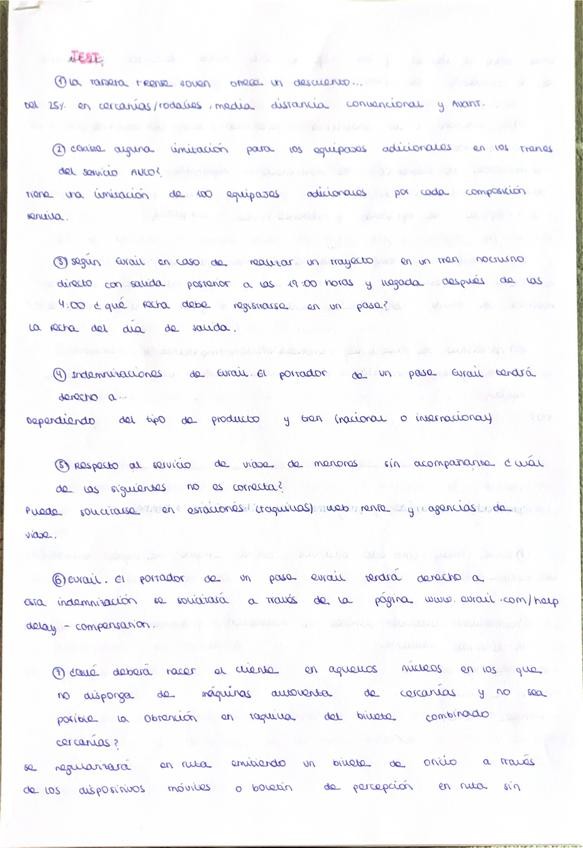 TEST:
① La tarjeta + Renfe Joven ofrece un descuento...
Del 25% en cercanías/rodalies, media distancia convencional y Avant.
② ¿Existe alguna limitación para los equipajes adicionales en los trenes
del servicio AVLO?
Tiene una limitación de 100 equipajes adicionales por cada composición
sencilla.
③ Según Eurail en caso de realizar un trayecto en un tren nocturno
directo con salida posterior a las 19:00 horas y llegada después de las
4:00 ¿qué fecha debe registrarse en un pase?
La fecha del día de salida.
④ Indemnizaciones de Eurail. El portador de un pase Eurail tendrá
derecho a...
Dependiendo del tipo de producto y tren (nacional o internacional)
⑤ Respecto al servicio de viaje de menores sin acompañante ¿cuál
de las siguientes no es correcta?
Puede solicitarse en estaciones (taquillas) web renfe y agencias de
viaje.
⑥ Eurail. El portador de un pase eurail tendrá derecho a
esta indemnización se solicitará a través de la página www.eurail.com/help
delay - compensation.
⑦ ¿Qué deberá hacer el cliente en aquellos núcleos en los que
no disponga de máquinas autoventa de cercanías y no sea
posible la obtención en taquilla del billete combinado
cercanías?
se regularizará en ruta emitiendo un billete de oficio a través
de los dispositivos móviles o boletín de percepción en ruta sin